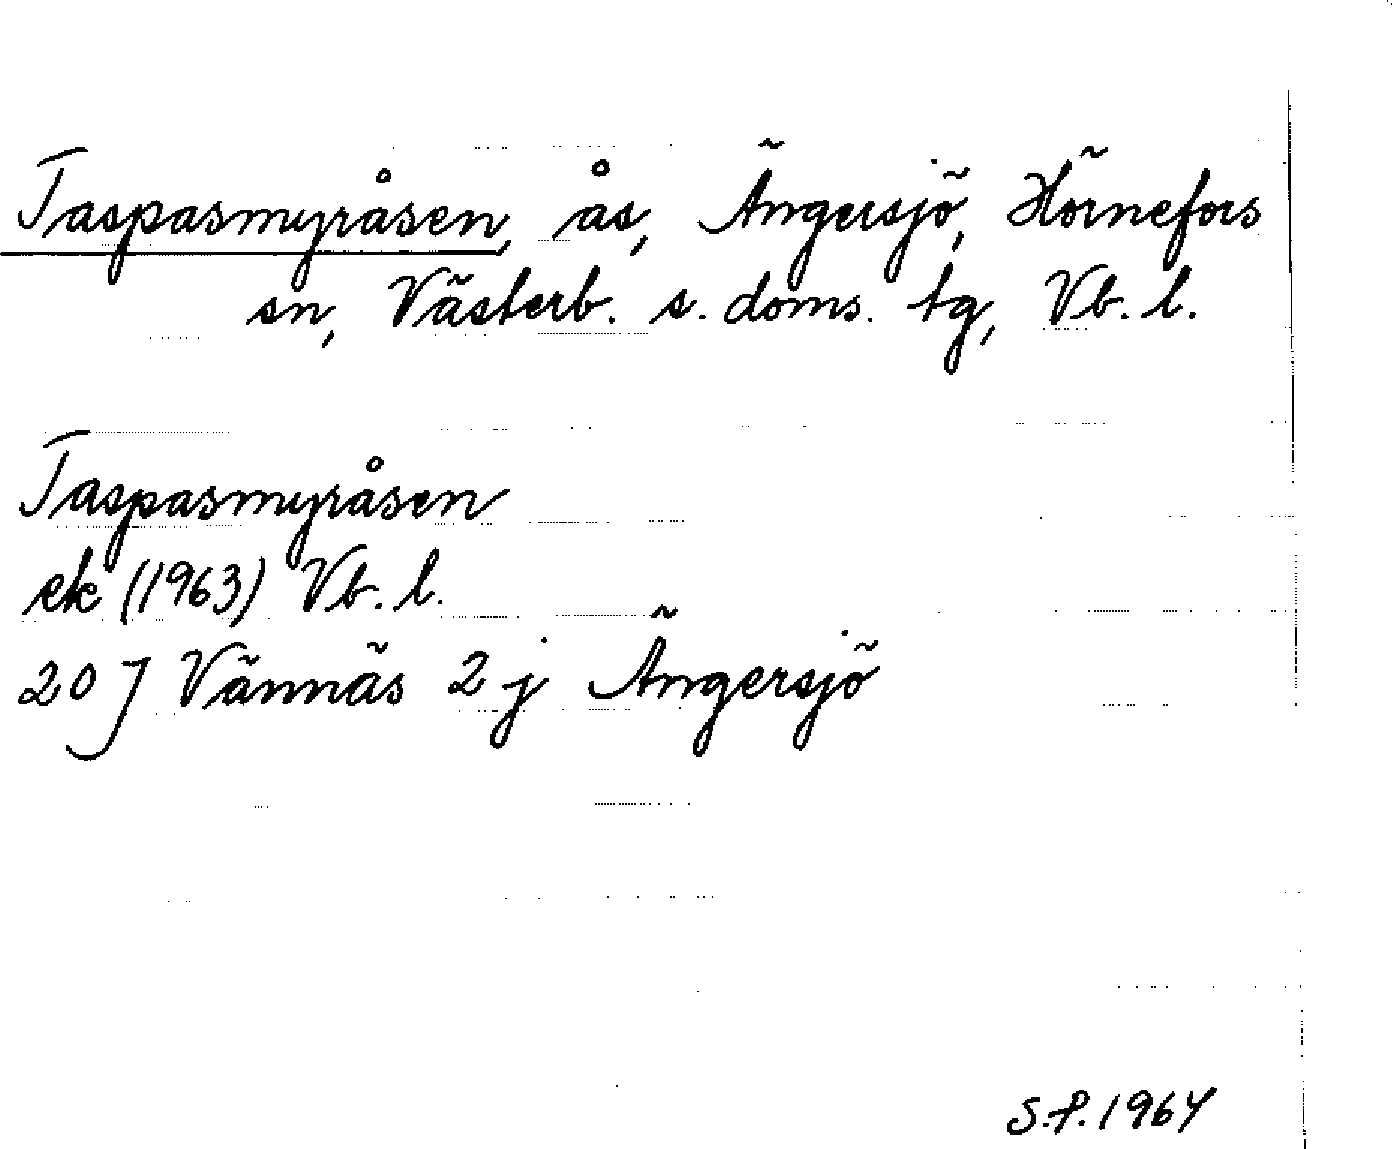 Taspasmyråsen, ås, Ängersjö, Hörnefors
sn, Västerb. s. doms. tg, Vb. l.
Taspasmyråsen
ek (1963) Vb. l.
20 J Vännäs 2 j Ängersjö
S.P. 1964